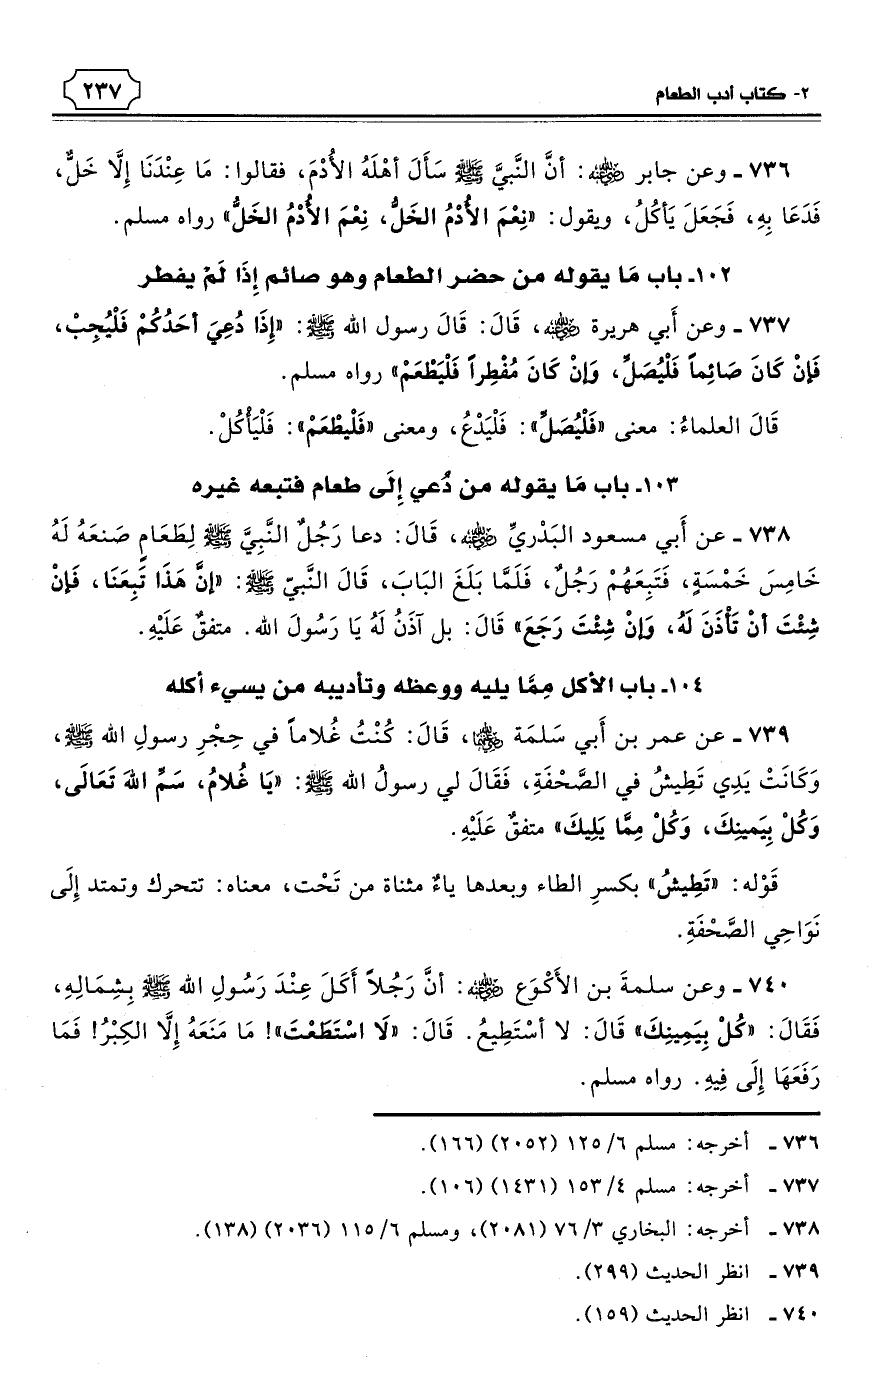 ٢- كتاب أدب الطعام
٢٣٧
٧٣٦ ـ وعن جابر رضي الله عنه: أنَّ النَّبيَّ ﷺ سَأَلَ أهْلَهُ الأُدْمَ، فقالوا: مَا عِنْدَنَا إِلَّا خَلٌّ،
فَدَعَا بِهِ، فَجَعَلَ يَأكُلُ، ويقول: «نِعْمَ الأُدْمُ الخَلُّ، نِعْمَ الأُدْمُ الخَلُّ» رواه مسلم.
١٠٢ـ باب مَا يقوله من حضر الطعام وهو صائم إِذَا لَمْ يفطر
٧٣٧ ـ وعن أَبي هريرة رضي الله عنه، قَالَ: قَالَ رسول الله ﷺ: «إِذَا دُعِيَ أحَدُكُمْ فَلْيُجِبْ،
فَإنْ كَانَ صَائِماً فَلْيُصَلِّ، وَإنْ كَانَ مُفْطِراً فَلْيَطْعَمْ» رواه مسلم.
قَالَ العلماءُ: معنى «فَلْيُصَلِّ»: فَلْيَدْعُ، ومعنى «فَلْيطْعَمْ»: فَلْيَأكُلْ.
١٠٣ـ باب مَا يقوله من دُعي إِلَى طعام فتبعه غيره
٧٣٨ ـ عن أَبي مسعود البَدْريِّ رضي الله عنه، قَالَ: دعا رَجُلٌ النَّبِيَّ ﷺ لِطَعَامٍ صَنعَهُ لَهُ
خَامِسَ خَمْسَةٍ، فَتَبِعَهُمْ رَجُلٌ، فَلَمَّا بَلَغَ البَابَ، قَالَ النَّبيّ ﷺ: «إنَّ هَذَا تَبِعَنَا، فَإنْ
شِئْتَ أنْ تَأْذَنَ لَهُ، وَإنْ شِئْتَ رَجَعَ» قَالَ: بل آذَنُ لَهُ يَا رَسُولَ الله. متفقٌ عَلَيْهِ.
١٠٤ـ باب الأكل مِمَّا يليه ووعظه وتأديبه من يسيء أكله
٧٣٩ ـ عن عمر بن أَبي سَلمَة رضي الله عنهما، قَالَ: كُنْتُ غُلاماً في حِجْرِ رسولِ الله ﷺ،
وَكَانَتْ يَدِي تَطِيشُ في الصَّحْفَةِ، فَقَالَ لي رسولُ الله ﷺ: «يَا غُلامُ، سَمِّ اللهَ تَعَالَى،
وَكُلْ بِيَمينِكَ، وَكُلْ مِمَّا يَلِيكَ» متفقٌ عَلَيْهِ.
قَوْله: «تَطِيشُ» بكسرِ الطاء وبعدها ياءٌ مثناة من تَحْت، معناه: تتحرك وتمتد إِلَى
نَوَاحِي الصَّحْفَةِ.
٧٤٠ ـ وعن سلمةَ بن الأكْوَع رضي الله عنه: أنَّ رَجُلاً أكَلَ عِنْدَ رَسُولِ الله ﷺ بِشِمَالِهِ،
فَقَالَ: «كُلْ بِيَمِينِكَ» قَالَ: لا أسْتَطِيعُ. قَالَ: «لَا اسْتَطَعْتَ»! مَا مَنَعَهُ إِلَّا الكِبْرُ! فَمَا
رَفَعَهَا إِلَى فِيهِ. رواه مسلم.
٧٣٦ ـ أخرجه: مسلم ٦/ ١٢٥ (٢٠٥٢) (١٦٦).
٧٣٧ ـ أخرجه: مسلم ٤/ ١٥٣ (١٤٣١) (١٠٦).
٧٣٨ ـ أخرجه: البخاري ٣/ ٧٦ (٢٠٨١)، ومسلم ٦/ ١١٥ (٢٠٣٦) (١٣٨).
٧٣٩ ـ انظر الحديث (٢٩٩).
٧٤٠ ـ انظر الحديث (١٥٩).